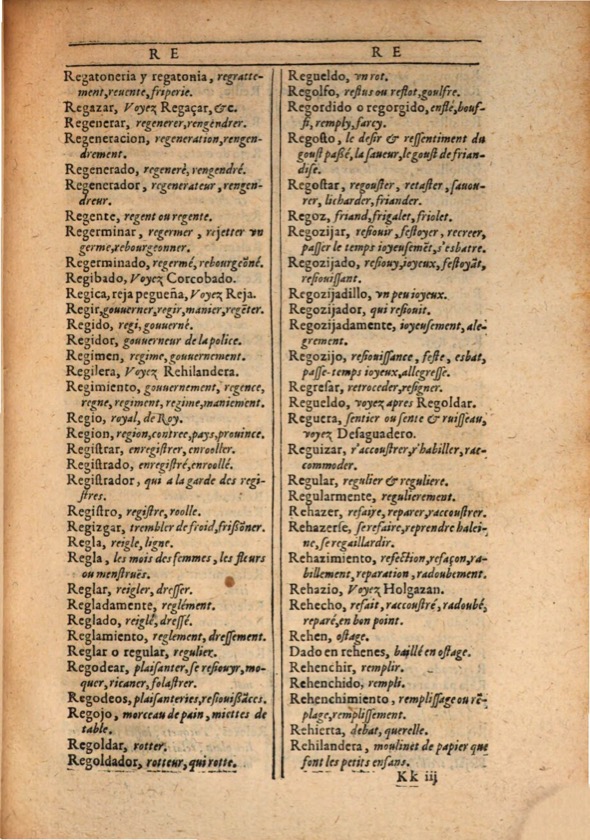 R E
Regatoneria y regatonia, regratte-
ment, reuente, friperie.
Regazar, Voyez Regaçar, &c.
Regenerar, regenerer, rengendrer.
Regeneracion, regeneration, rengen-
drement.
Regenerado, regeneré, rengendré.
Regenerador, regenerateur, rengen-
dreur.
Regente, regent ou regente.
Regerminar, regermer, rejetter vn
germe, rebourgeonner.
Regerminado, regermé, rebourgeõné.
Regibado, Voyez Corcobado.
Regica, reja pegueña, Voyez Reja.
Regir, gouuerner, regir, manier, regēter.
Regido, regi, gouuerné.
Regidor, gouuerneur de la police.
Regimen, regime, gouuernement.
Regilera, Voyez Rehilandera.
Regimiento, gouuernement, regence,
regne, regiment, regime, maniement.
Regio, royal, de Roy.
Region, region, contree, pays, prouince.
Regiſtrar, enregiſtrer, enrooller.
Regiſtrado, enregiſtré, enroollé.
Regiſtrador, qui a la garde des regi-
ſtres.
Regiſtro, regiſtre, roolle.
Regizgar, trembler de froid, friſſõner.
Regla, reigle, ligne.
Regla, les mois des femmes, les fleurs
ou menſtruës.
Reglar, reigler, dreſſer.
Regladamente, reglément.
Reglado, reiglé, dreſſé.
Reglamiento, reglement, dreſſement.
Reglar o regular, regulier.
Regodear, plaiſanter, ſe reſiouyr, mo-
quer, ricaner, folaſtrer.
Regodeos, plaiſanteries, reſiouiſſãces.
Regojo, morceau de pain, miettes de
table.
Regoldar, rotter.
Regoldador, rotteur, qui rotte.
R E
Regueldo, vn rot.
Regolfo, reflus ou reflot, goulfre.
Regordido o regorgido, enflé, bouf-
fi, remply, farcy.
Regoſto, le deſir & reſſentiment du
gouſt paſſé, la ſaueur, le gouſt de frian-
diſe.
Regoſtar, regouſter, retaſter, ſauou-
rer, licharder, friander.
Regoz, friand, frigalet, friolet.
Regozijar, reſiouir, feſtoyer, recreer,
paſſer le temps ioyeuſemēt, s'esbatre.
Regozijado, reſiouy, ioyeux, feſtoyāt,
reſiouiſſant.
Regozijadillo, vn peu ioyeux.
Regozijador, qui reſiouit.
Regozijadamente, ioyeuſement, ale-
grement.
Regozijo, reſiouiſſance, feſte, esbat,
paſſe-temps ioyeux, allegreſſe.
Regreſar, retroceder, reſigner.
Regueldo, voyez apres Regoldar.
Reguera, ſentier ou ſente & ruiſſeau,
voyez Deſaguadero.
Reguizar, r'accouſtrer, r'habiller, rac-
commoder.
Regular, regulier & reguliere.
Regularmente, regulierement.
Rehazer, refaire, reparer, raccouſtrer.
Rehazerſe, ſe refaire, reprendre halei-
ne, ſe regaillardir.
Rehazimiento, refection, refaçon, ra-
billement, reparation, radoubement.
Rehazio, Voyez Holgazan.
Rehecho, refait, raccouſtré, radoubé,
reparé, en bon point.
Rehen, oſtage.
Dado en rehenes, baillé en oſtage.
Rehenchir, remplir.
Rehenchido, rempli.
Rehenchimiento, rempliſſage ou rē-
plage, rempliſſement.
Rehierta, debat, querelle.
Rehilandera, moulinet de papier que
font les petits enfans.
Kk iij